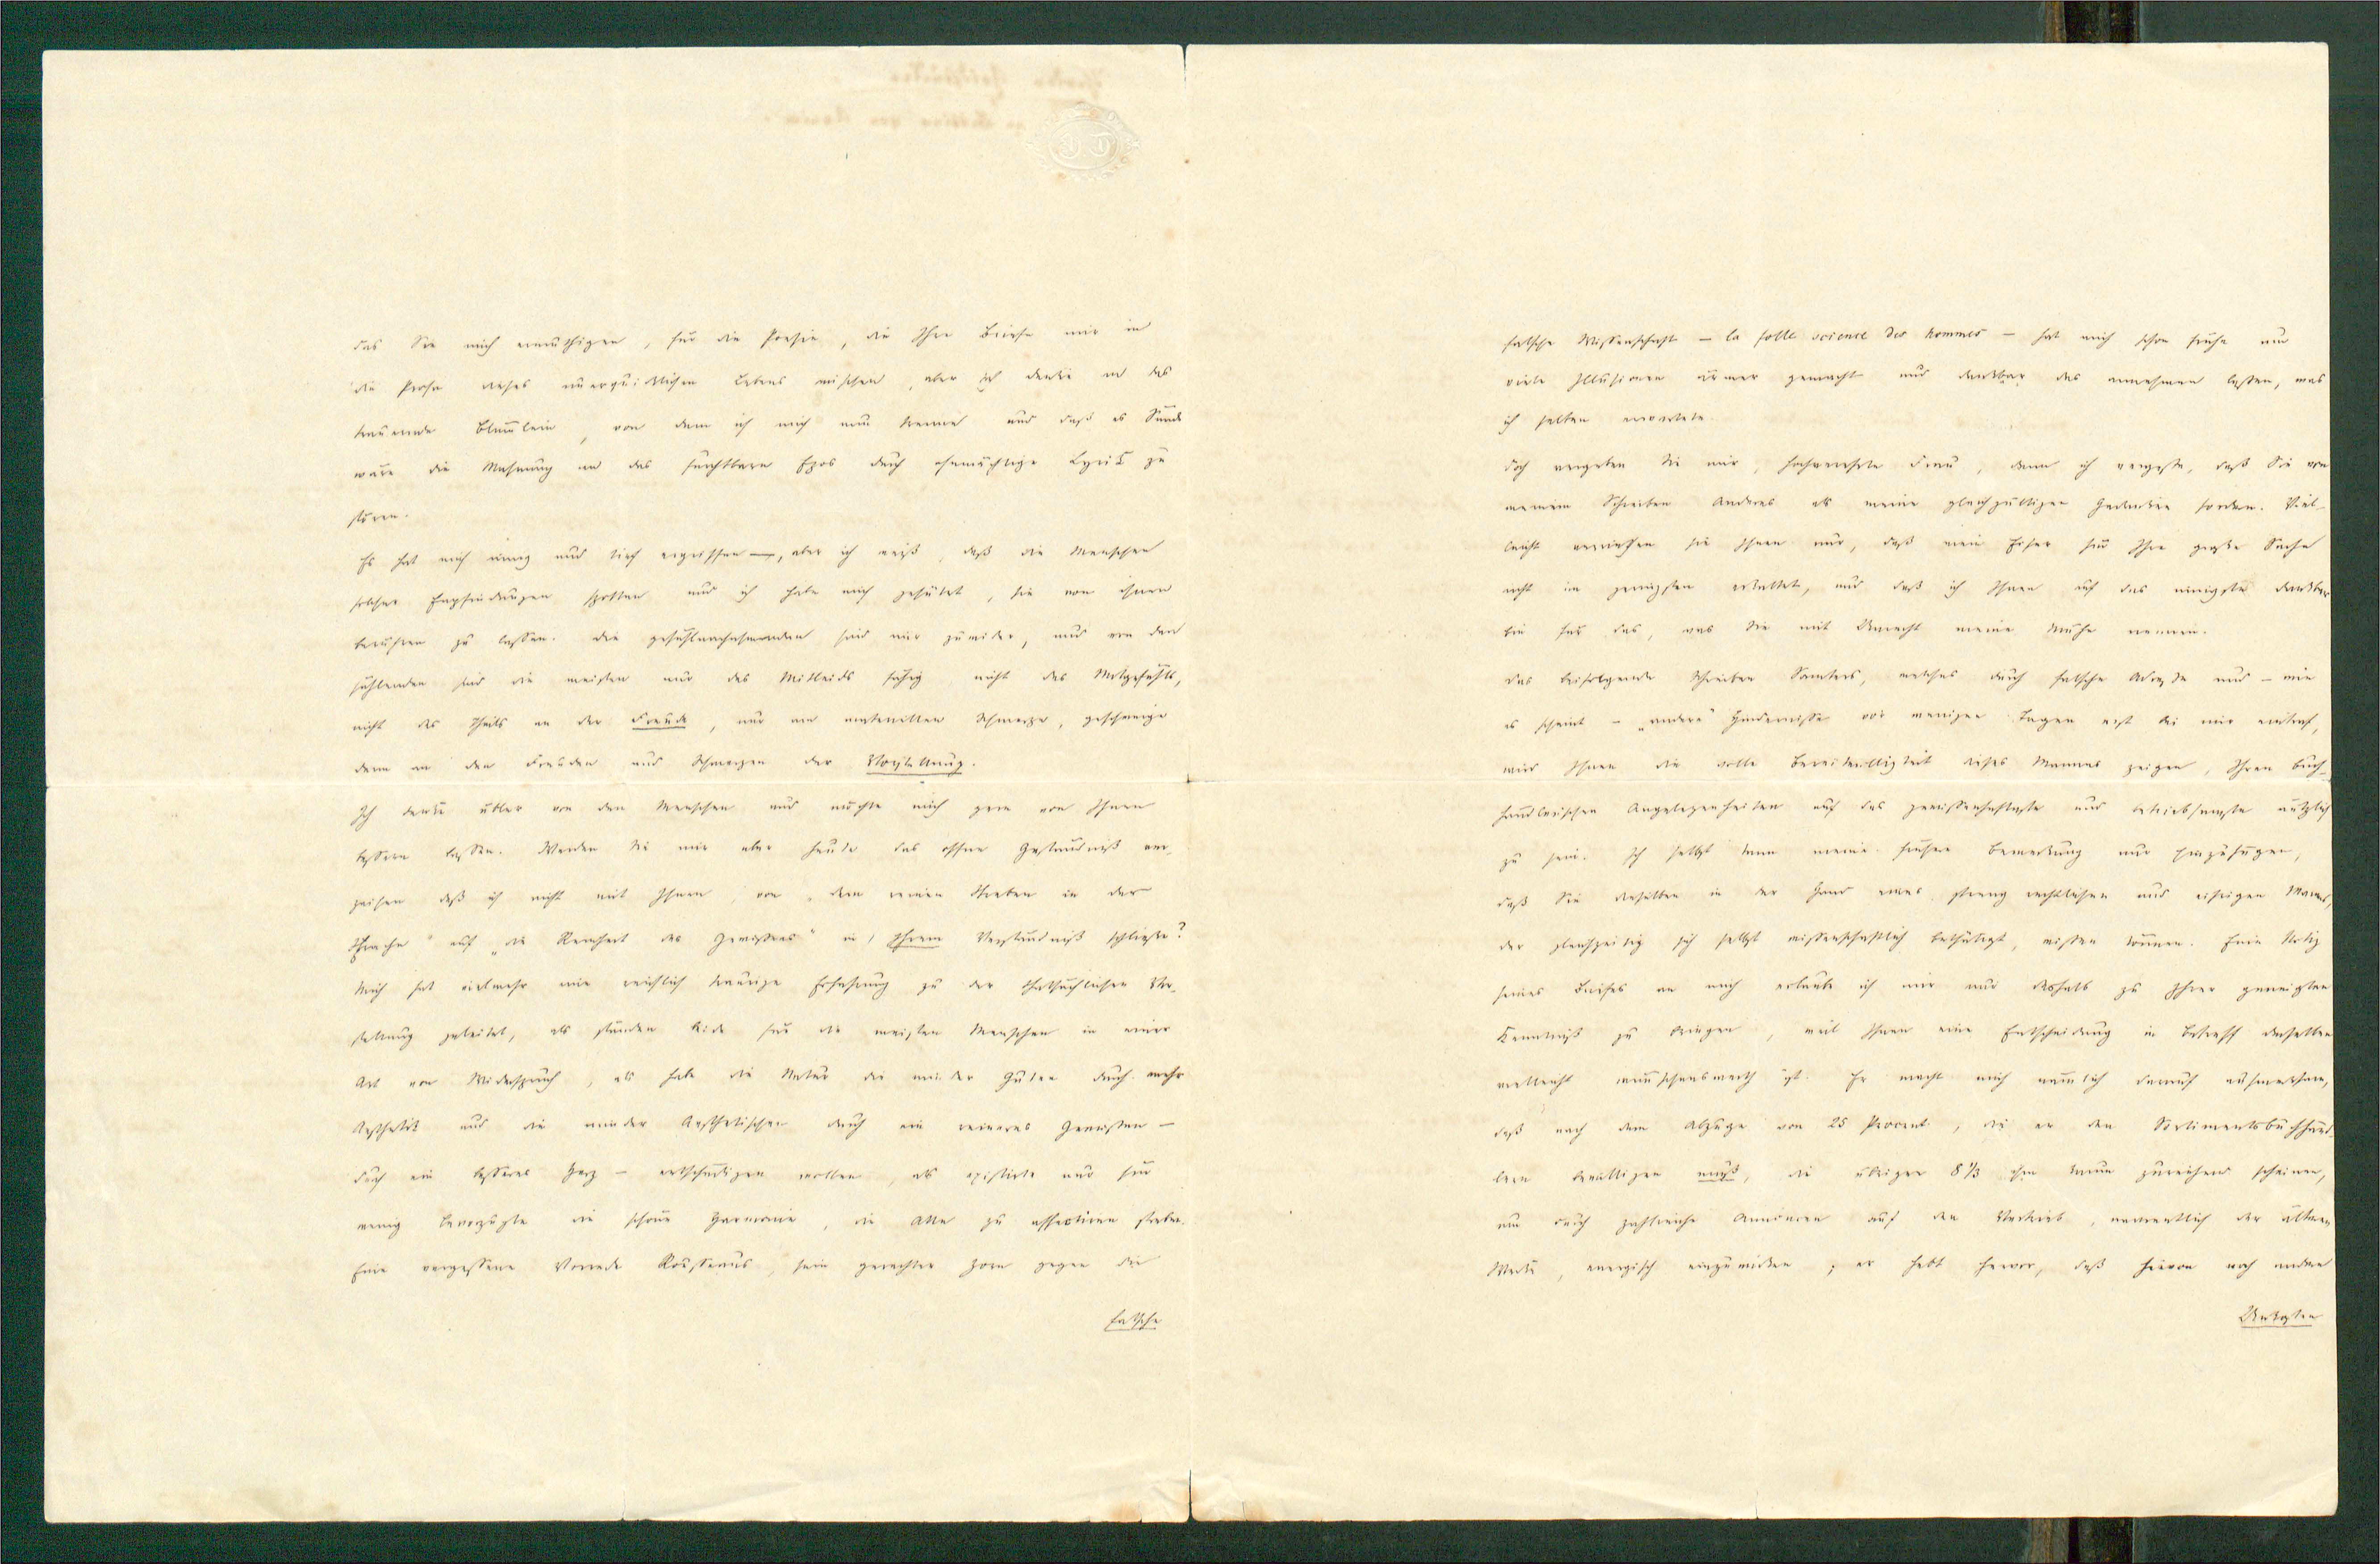 das Sie mich ermuthigen, für die Poesie, die Ihre Briefe mir in
die Prosa dieses unerquicklichen Lebens mischen, aber ich denke an das
trauernde Blümlein, von dem ich mich nun trenne und daß es Sünde
wäre die Mahnung an das furchtbare Epos durch ohnmächtige Lyrik zu
stören.
Es hat mich innig und tief ergriffen —, aber ich weiß, daß die Menschen
solcher Empfindungen spotten und ich habe mich gehütet, sie von ihnen
berühren zu lassen. Die gefühlnachahmenden sind mir zuwider, und von den
fühlenden sind die meisten nur des Mitleids fähig nicht des Mitgefühls,
nicht des Theils an der Freude, nur am materiellen Schmerze, geschweige
denn an den Freuden und Schmerzen der Vorstellung.
Ich denke übler von den Menschen und möchte mich gern von Ihnen
bessern lassen. Werden Sie mir aber heute das offene Geständniß ver-
zeihen daß ich nicht mit Ihnen, von „dem reinen Streben in der
Sprache“ auf „die Reinheit des Gewissens“ in Ihrem Verständniß schließe?
Mich hat vielmehr eine reichlich traurige Erfahrung zu der thatsächlichen Vor-
stellung geleitet, als stünden beide für die meisten Menschen in einer
Art von Widerspruch, als habe die Natur die minder Guten durch mehr
Aesthetik und die minder Aesthetischen durch ein reineres Gewissen —
durch ein besseres Herz — entschädigen wollen, als existirte nur für
wenig Bevorzugte die schöne Harmonie, die Alle zu affectiren streben.
Eine vergessene Vorrede Rousseaus, sein gerechter Zorn gegen die
falsche
falsche Wissenschaft — la folle science des hommes — hat mich schon frühe um
viele Illusionen ärmer gemacht und dankbar das annehmen lassen, was
ich selten erwartete.
Doch vergeben Sie mir, hochverehrte Frau, denn ich vergesse, daß Sie von
meinem Schreiben Anderes als meine gleichgültigen Gedanken fordern. Viel-
leicht verriethen sie Ihnen nur, daß mein Eifer für Ihre große Sache
nicht im geringsten erkaltet, und daß ich Ihnen auf das innigste dankbar
bin für das, was Sie mit Unrecht meine Mühe nennen.
Das beifolgende Schreiben Samters, welches durch falsche Adresse und – wie
es scheint – „andere“ Hindernisse vor wenigen Tagen erst bei mir eintraf,
wird Ihnen die volle Bereitwilligkeit dieses Mannes zeigen, Ihren buch-
händlerischen Angelegenheiten auf das gewissenhafteste und betriebsamste nützlich
zu sein. Ich selbst kann meine frühere Bemerkung nur hinzufügen,
daß Sie dieselben in der Hand eines streng rechtlichen und eifrigen Mannes,
der gleichzeitig sich selbst wissenschaftlich bethätigt, wissen können. Eine Notiz
seines Briefes an mich erlaube ich mir nur deshalb zu Ihrer geneigten
Kenntniß zu bringen, weil Ihnen eine Entscheidung in Betreff derselben
vielleicht wünschenswerth ist. Er macht mich nämlich darauf aufmerksam,
daß nach dem Abzuge von 25 Procent, die er den Sortimentsbuchhänd-
lern bewilligen muß, die übrigen 8 1/3 ihm kaum zureichend scheinen,
um durch zahlreiche Annoncen auf den Vertrieb, namentlich der älteren
Werke, energisch einzuwirken; er hebt hervor, daß hievon noch andere
Unkosten